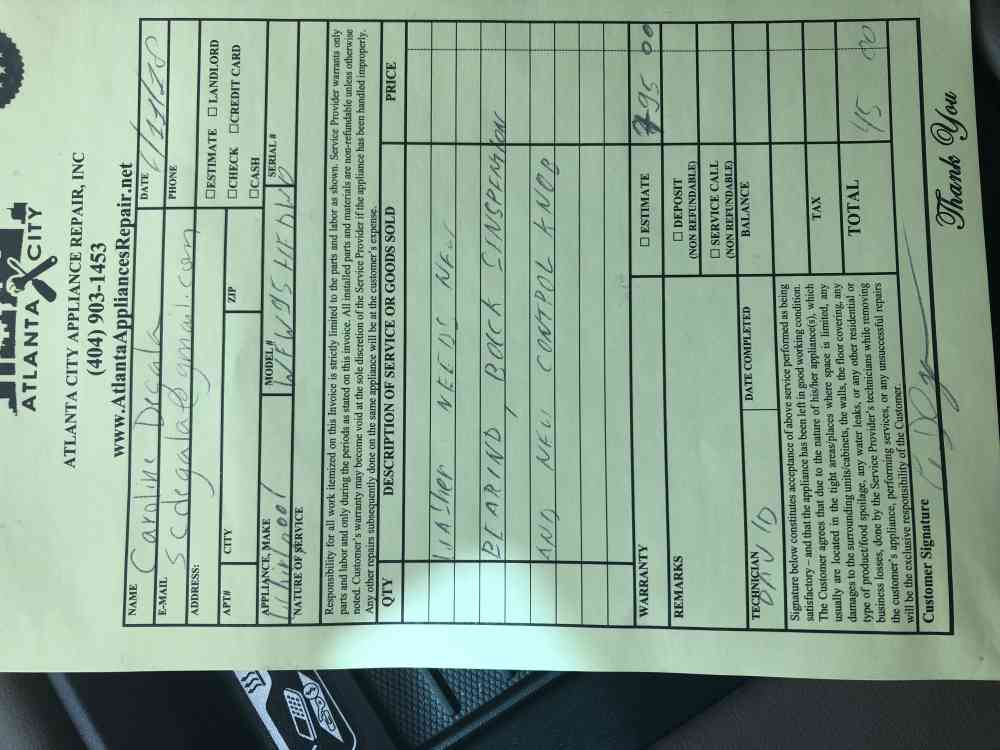 ATLANTA CITY
ATLANTA CITY APPLIANCE REPAIR, INC
(404) 903-1453
www.AtlantaAppliancesRepair.net
NAME Caroline Degala DATE
E-MAIL scdegala@gmail.com PHONE
ADDRESS: ☐ ESTIMATE ☐ LANDLORD
☐ CHECK ☐ CREDIT CARD
APT# CITY ZIP ☐ CASH
APPLIANCE, MAKE Whirlpool MODEL # SERIAL #
NATURE OF SERVICE
Responsibility for all work itemized on this Invoice is strictly limited to the parts and labor as shown. Service Provider warrants only
parts and labor and only during the periods as stated on this invoice. All installed parts and materials are non-refundable unless otherwise
noted. Customer's warranty may become void at the sole discretion of the Service Provider if the appliance has been handled improperly.
Any other repairs subsequently done on the same appliance will be at the customer's expense.
QTY DESCRIPTION OF SERVICE OR GOODS SOLD PRICE
Washer NEEDS NEW
BEARIND, BACK SINSPENSION
AND NEW CONTROL KNOB
WARRANTY ☐ ESTIMATE 795 00
REMARKS ☐ DEPOSIT
(NON REFUNDABLE)
☐ SERVICE CALL
(NON REFUNDABLE)
TECHNICIAN DAVID DATE COMPLETED BALANCE
Signature below constitutes acceptance of above service performed as being
satisfactory – and that the appliance has been left in good working condition.
The Customer agrees that due to the nature of his/her appliance(s), which
usually are located in the tight areas/places where space is limited, any
damages to the surrounding units/cabinets, the walls, the floor covering, any
type of product/food spoilage, any water leaks, or any other residential or
business losses, done by the Service Provider's technicians while removing
the customer's appliance, performing services, or any unsuccessful repairs
will be the exclusive responsibility of the Customer.
TAX
TOTAL 45 00
Customer Signature
Thank You